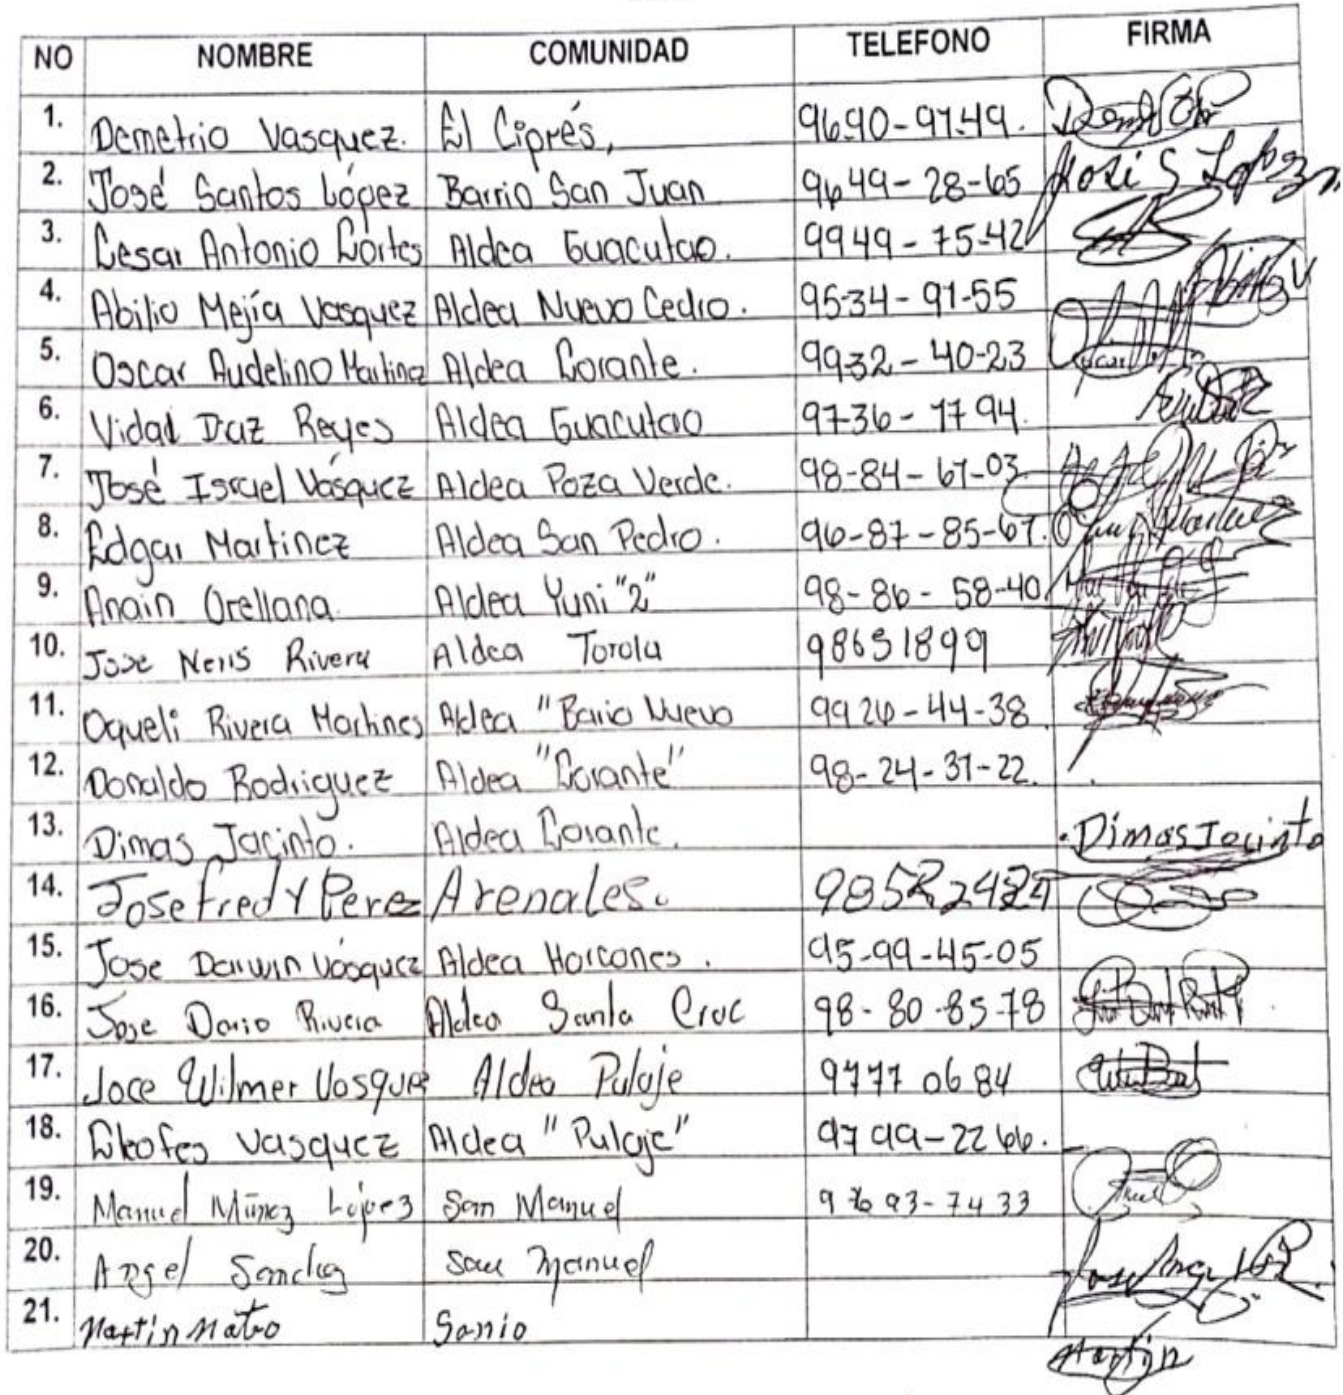 NO NOMBRE COMUNIDAD TELEFONO FIRMA
1. Demetrio Vasquez. El Ciprés, 9690-97-49.
2. José Santos López Barrio San Juan 9649-28-65 José S Lopez
3. Cesar Antonio Cortes Aldea Guacutao. 9949-75-42
4. Abilio Mejía Vasquez Aldea Nuevo Cedro. 9534-91-55
5. Oscar Audelino Martinez Aldea Corante. 9932-40-23
6. Vidal Diaz Reyes Aldea Guacutao 9736-7794.
7. José Israel Vásquez Aldea Poza Verde. 98-84-67-03
8. Edgar Martinez Aldea San Pedro. 96-87-85-67.
9. Anain Orellana. Aldea Yuni "2" 98-86-58-40
10. Jose Neris Rivera Aldea Torola 98651899
11. Oqueli Rivera Martines Aldea "Bario Nuevo 9926-44-38
12. Donaldo Rodriguez Aldea "Corante" 98-24-31-22.
13. Dimas Jacinto. Aldea Corante. Dimas Jacinto
14. Jose Fredy Perez Arenales. 98522424
15. Jose Darwin Vásquez Aldea Horcones. 95-99-45-05
16. Jose Dario Rivera Aldea Santa Cruc 98-80-85-78
17. Joce Wilmer Vosquez Aldea Pulaje 9777 06 84
18. Vasquez Aldea "Pulaje" 97 99-22 66.
19. Manuel López San Manuel 93-74 33
20. Angel Sanchez San Manuel
21. Martin Mateo Sanio Martin